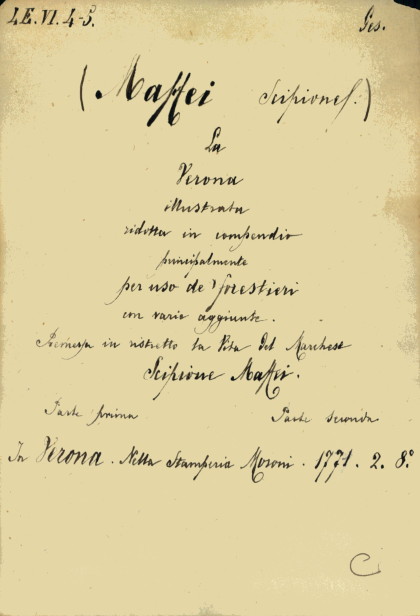 I.E.VI.4-5. Ges.
(Maffei Scipione.)
La
Verona
illustrata
ridotta in compendio
principalmente
per uso de' Forestieri
con varie aggiunte.
Premessa in ristretto la Vita del Marchese
Scipione Maffei.
Parte prima Parte seconda
In Verona. Nella Stamperia Moroni. 1771. 2. 8.°
C